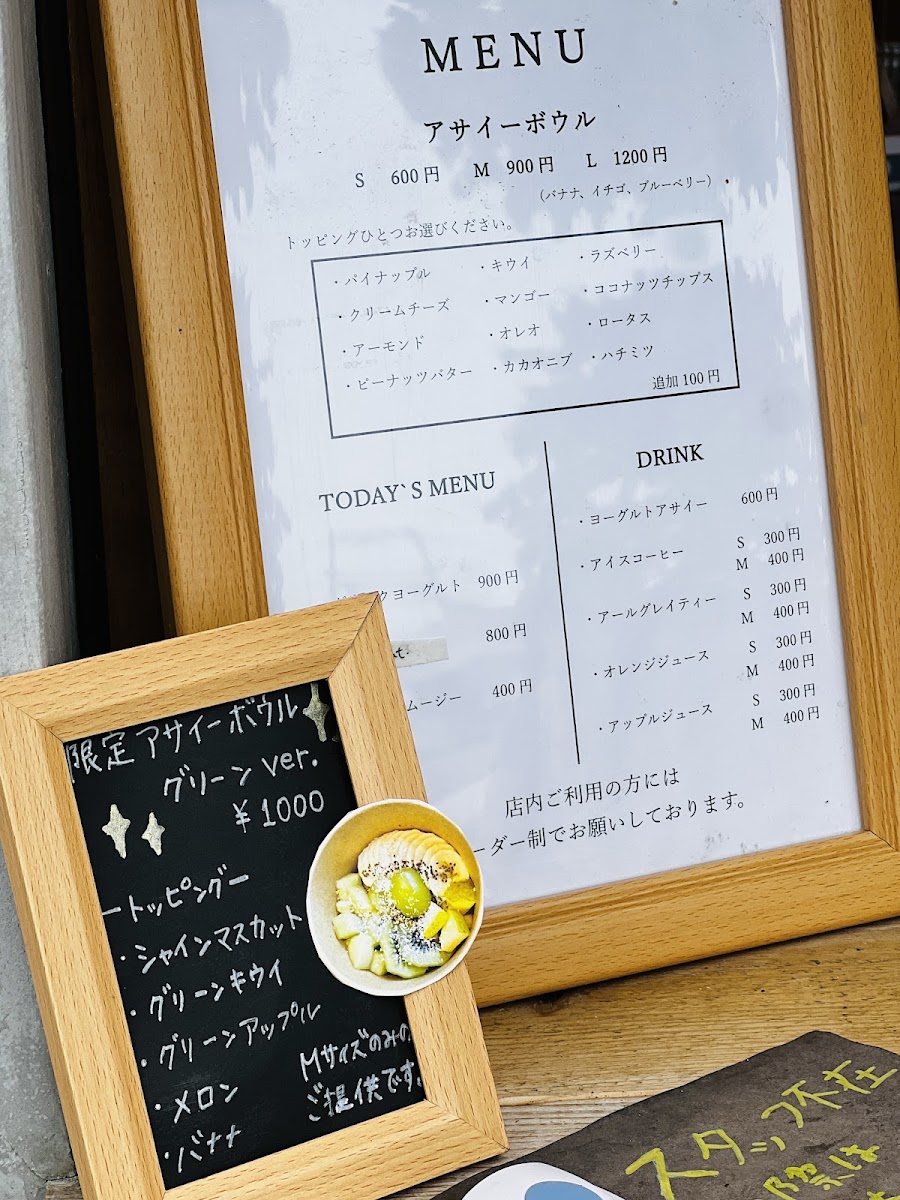 MENU
アサイーボウル
S 600円 M 900円 L 1200円
(バナナ、イチゴ、ブルーベリー)
トッピングひとつお選びください。
・パイナップル ・キウイ ・ラズベリー
・クリームチーズ ・マンゴー ・ココナッツチップス
・アーモンド ・オレオ ・ロータス
・ピーナッツバター ・カカオニブ ・ハチミツ
追加100円
TODAY`S MENU
クヨーグルト 900円
800円
ムージー 400円
DRINK
・ヨーグルトアサイー 600円
・アイスコーヒー S 300円
M 400円
・アールグレイティー S 300円
M 400円
・オレンジジュース S 300円
M 400円
・アップルジュース S 300円
M 400円
店内ご利用の方には
ーダー制でお願いしております。
限定アサイーボウル
グリーンver.
¥1000
ートッピングー
・シャインマスカット
・グリーンキウイ
・グリーンアップル
・メロン
・バナナ
Mサイズのみの
ご提供です。
スタッフ不在
際は